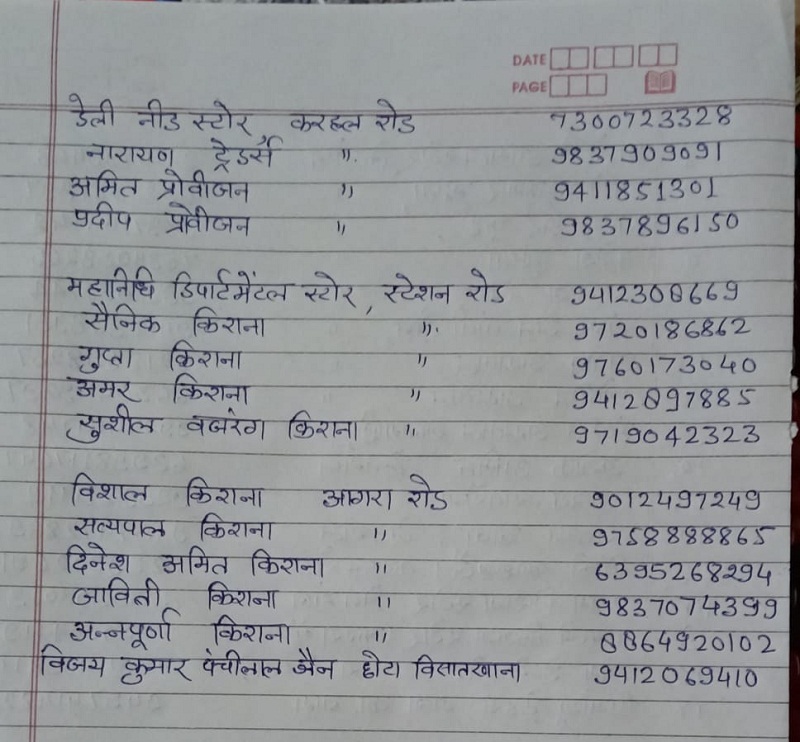 DATE
PAGE
डेली नीड स्टोर, करहल रोड 7300723328
नारायण ट्रेडर्स " 9837909091
अमित प्रोवीजन " 9411851301
प्रदीप प्रोवीजन " 9837896150
महानिधि डिपार्टमेंटल स्टोर, स्टेशन रोड 9412308669
सैनिक किराना " 9720186862
गुप्ता किराना " 9760173040
अमर किराना " 9412897885
सुशील वजरंग किराना " 9719042323
विशाल किराना आगरा रोड 9012497249
सत्यपाल किराना " 9758888865
दिनेश अमित किराना " 6395268294
जावित्री किराना " 9837074399
अन्नपूर्णा किराना " 8864920102
विजय कुमार पंचीलाल जैन छोटा विसातखाना 9412069410